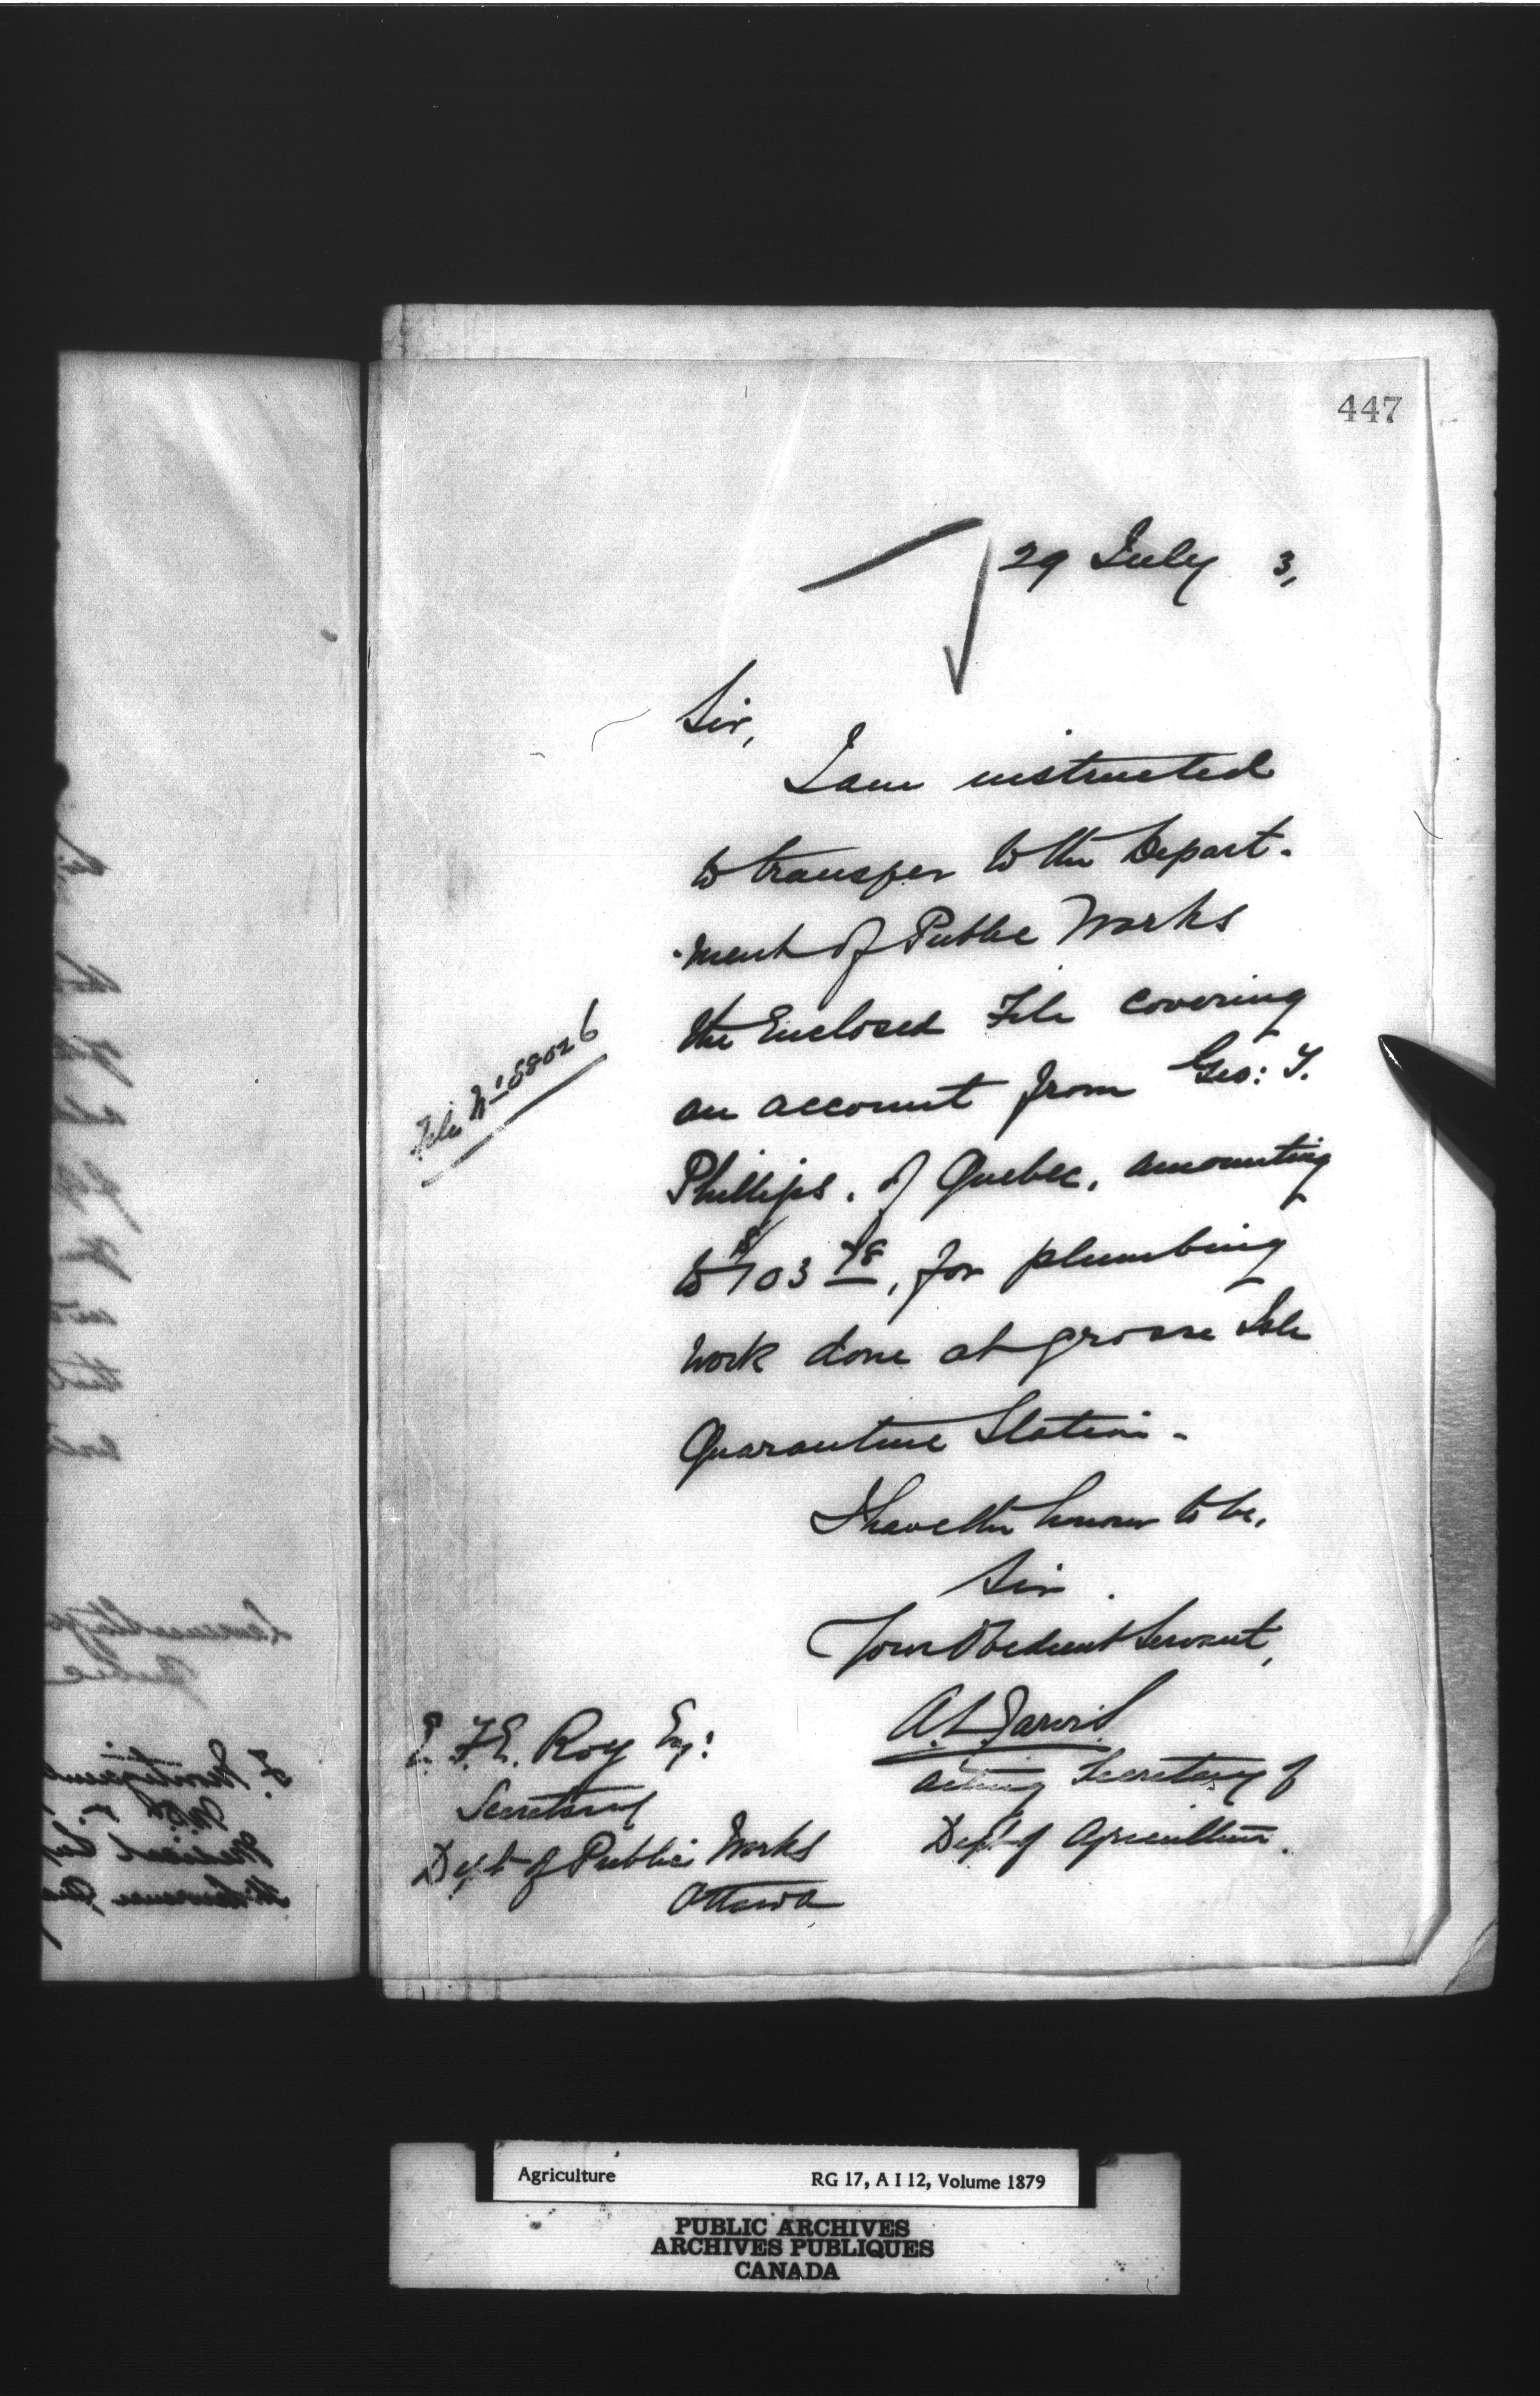 447
29 July 3,
Sir,
I am instructed
to transfer to the Depart-
-ment of Public Works
the Enclosed File covering
File No 58026
an account from Geo: T.
Phillips, of Quebec, amounting
to $103 78, for plumbing
work done at Grosse Isle
Quarantine Station -
I have the honour to be,
Sir
Your Obedient Servant,
A. L. Jarvis
Acting Secretary of
Dept of Agriculture.
E. F. E. Roy Esq:
Secretary
Dept of Public Works
Ottawa
Agriculture RG 17, A I 12, Volume 1879
PUBLIC ARCHIVES
ARCHIVES PUBLIQUES
CANADA